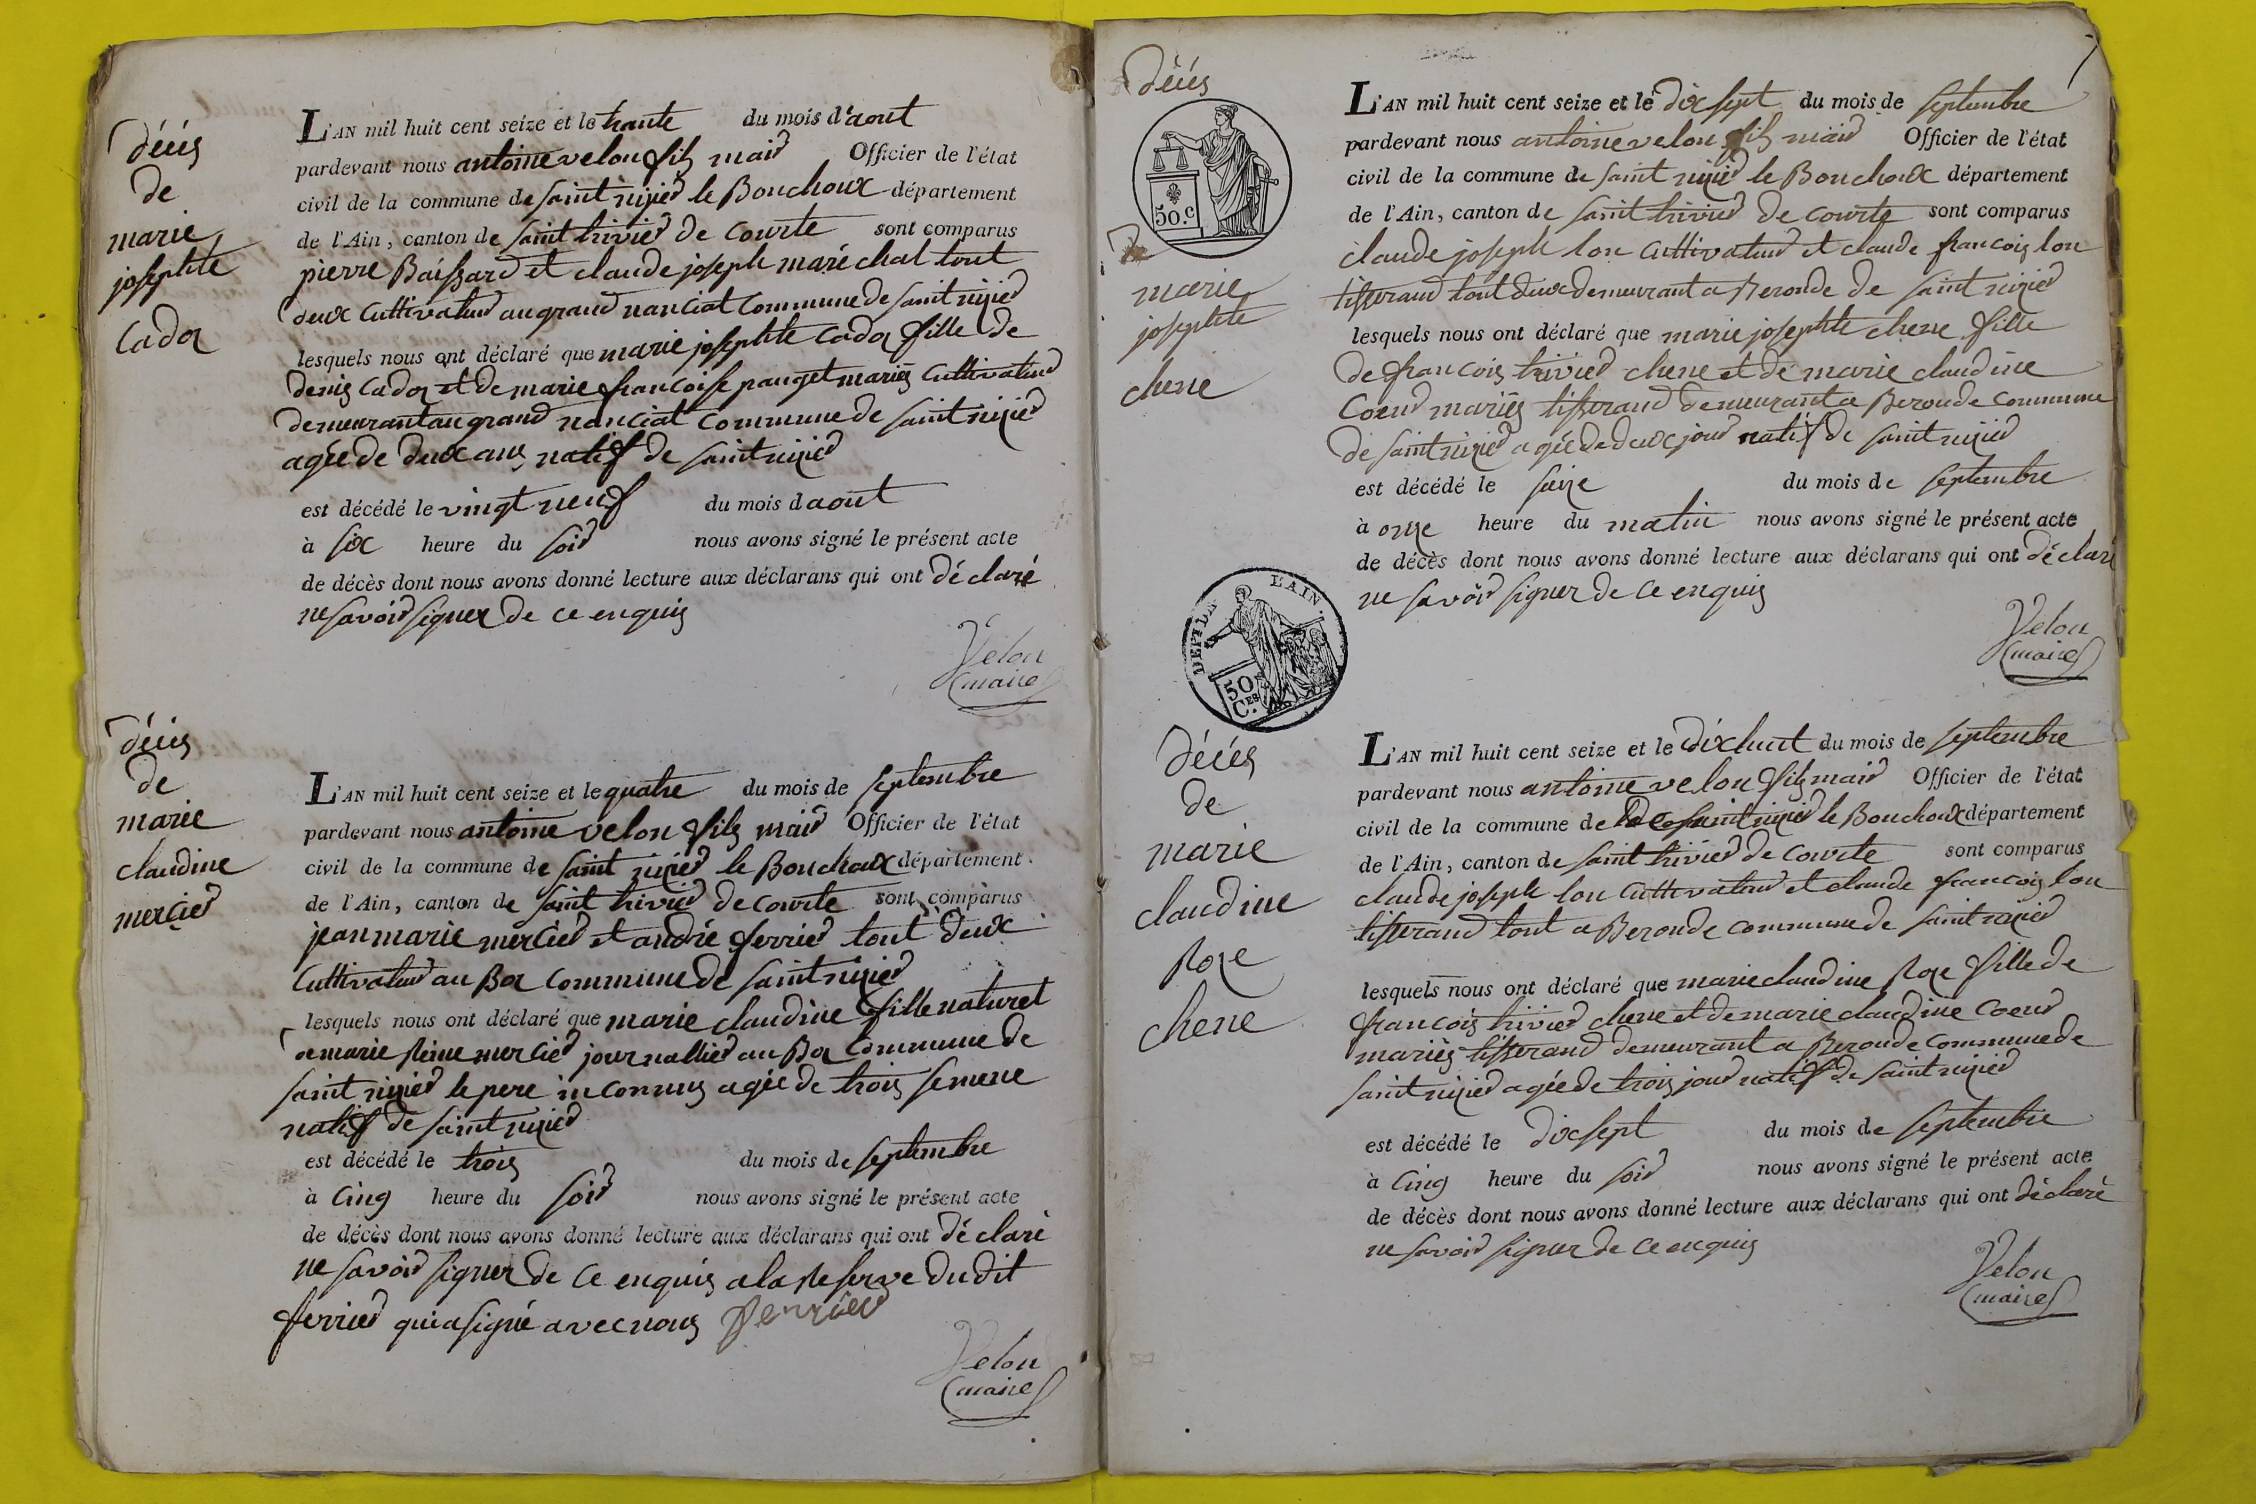 décés
de
marie
josephte
Cador
L'AN mil huit cent seize et le trante du mois d'aout
pardevant nous antoine velon fils maire Officier de l'état
civil de la commune de saint nizier le Bouchoux département
de l'Ain, canton de saint trivier de Courte sont comparus
pierre Baissard et claude joseph maréchal tout
deux Cultivateur au grand nanciat Commune de saint nizier
lesquels nous ont déclaré que marie josephte Cador fille de
denis Cador et de marie francoise pauget mariés Cultivateur
demeurant au grand nanciat Commune de saint nizier
agée de deux ans natif de saint nizier
est décédé le vingt neuf du mois d aout
à six heure du soir nous avons signé le présent acte
de décès dont nous avons donné lecture aux déclarans qui ont déclaré
ne savoir signer de ce enquis
Velon
maire
décés
de
marie
claudine
mercier
L'AN mil huit cent seize et le quatre du mois de septembre
pardevant nous antoine velon fils maire Officier de l'état
civil de la commune de saint nizier le Bouchoux département
de l'Ain, canton de saint trivier de Courte sont comparus
jean marie mercier et andré ferrier tout deux
Cultivateur au Bor Commune de saint nizier
lesquels nous ont déclaré que marie claudine fille naturel
de marie Reine mercier journallier au Bor Commune de
saint nizier le pere inconnus agée de trois semene
natif de saint nizier
est décédé le trois du mois de septembre
à Cinq heure du soir nous avons signé le présent acte
de décès dont nous avons donné lecture aux déclarans qui ont déclaré
ne savoir signer de ce enquis a la Reserve dudit
ferrier qui a signé avec nous ferrier
Velon
maire
décés
50.c
de
marie
josephte
chene
L'AN mil huit cent seize et le dix sept du mois de septembre
pardevant nous antoine velon fils maire Officier de l'état
civil de la commune de saint nizier le Bouchoux département
de l'Ain, canton de saint trivier de Courte sont comparus
claude joseph lon Cultivateur et claude francois lon
tisserand tout deux demeurant a Beronde de saint nizier
lesquels nous ont déclaré que marie josephte chene fille
de francois trivier chene et de marie claudine
Coeur mariés tisserand demeurant a Beronde Commune
de saint nizier agée de deux jour natif de saint nizier
est décédé le seize du mois de septembre
à onze heure du matin nous avons signé le présent acte
de décès dont nous avons donné lecture aux déclarans qui ont déclaré
ne savoir signer de ce enquis
Velon
maire
DEPT DE L'AIN.
50
C.ES
décés
de
marie
claudine
Roze
chene
L'AN mil huit cent seize et le dix huit du mois de septembre
pardevant nous antoine velon fils maire Officier de l'état
civil de la commune de saint nizier le Bouchoux département
de l'Ain, canton de saint trivier de Courte sont comparus
claude joseph lon Cultivateur et claude francois lon
tisserand tout a Beronde commune de saint nizier
lesquels nous ont déclaré que marie claudine Roze fille de
francois trivier chene et de marie claudine Coeur
mariés tisserand demeurant a Beronde Commune de
saint nizier agée de trois jour natif de saint nizier
est décédé le dix sept du mois de septembre
à Cinq heure du soir nous avons signé le présent acte
de décès dont nous avons donné lecture aux déclarans qui ont déclaré
ne savoir signer de ce enquis
Velon
maire